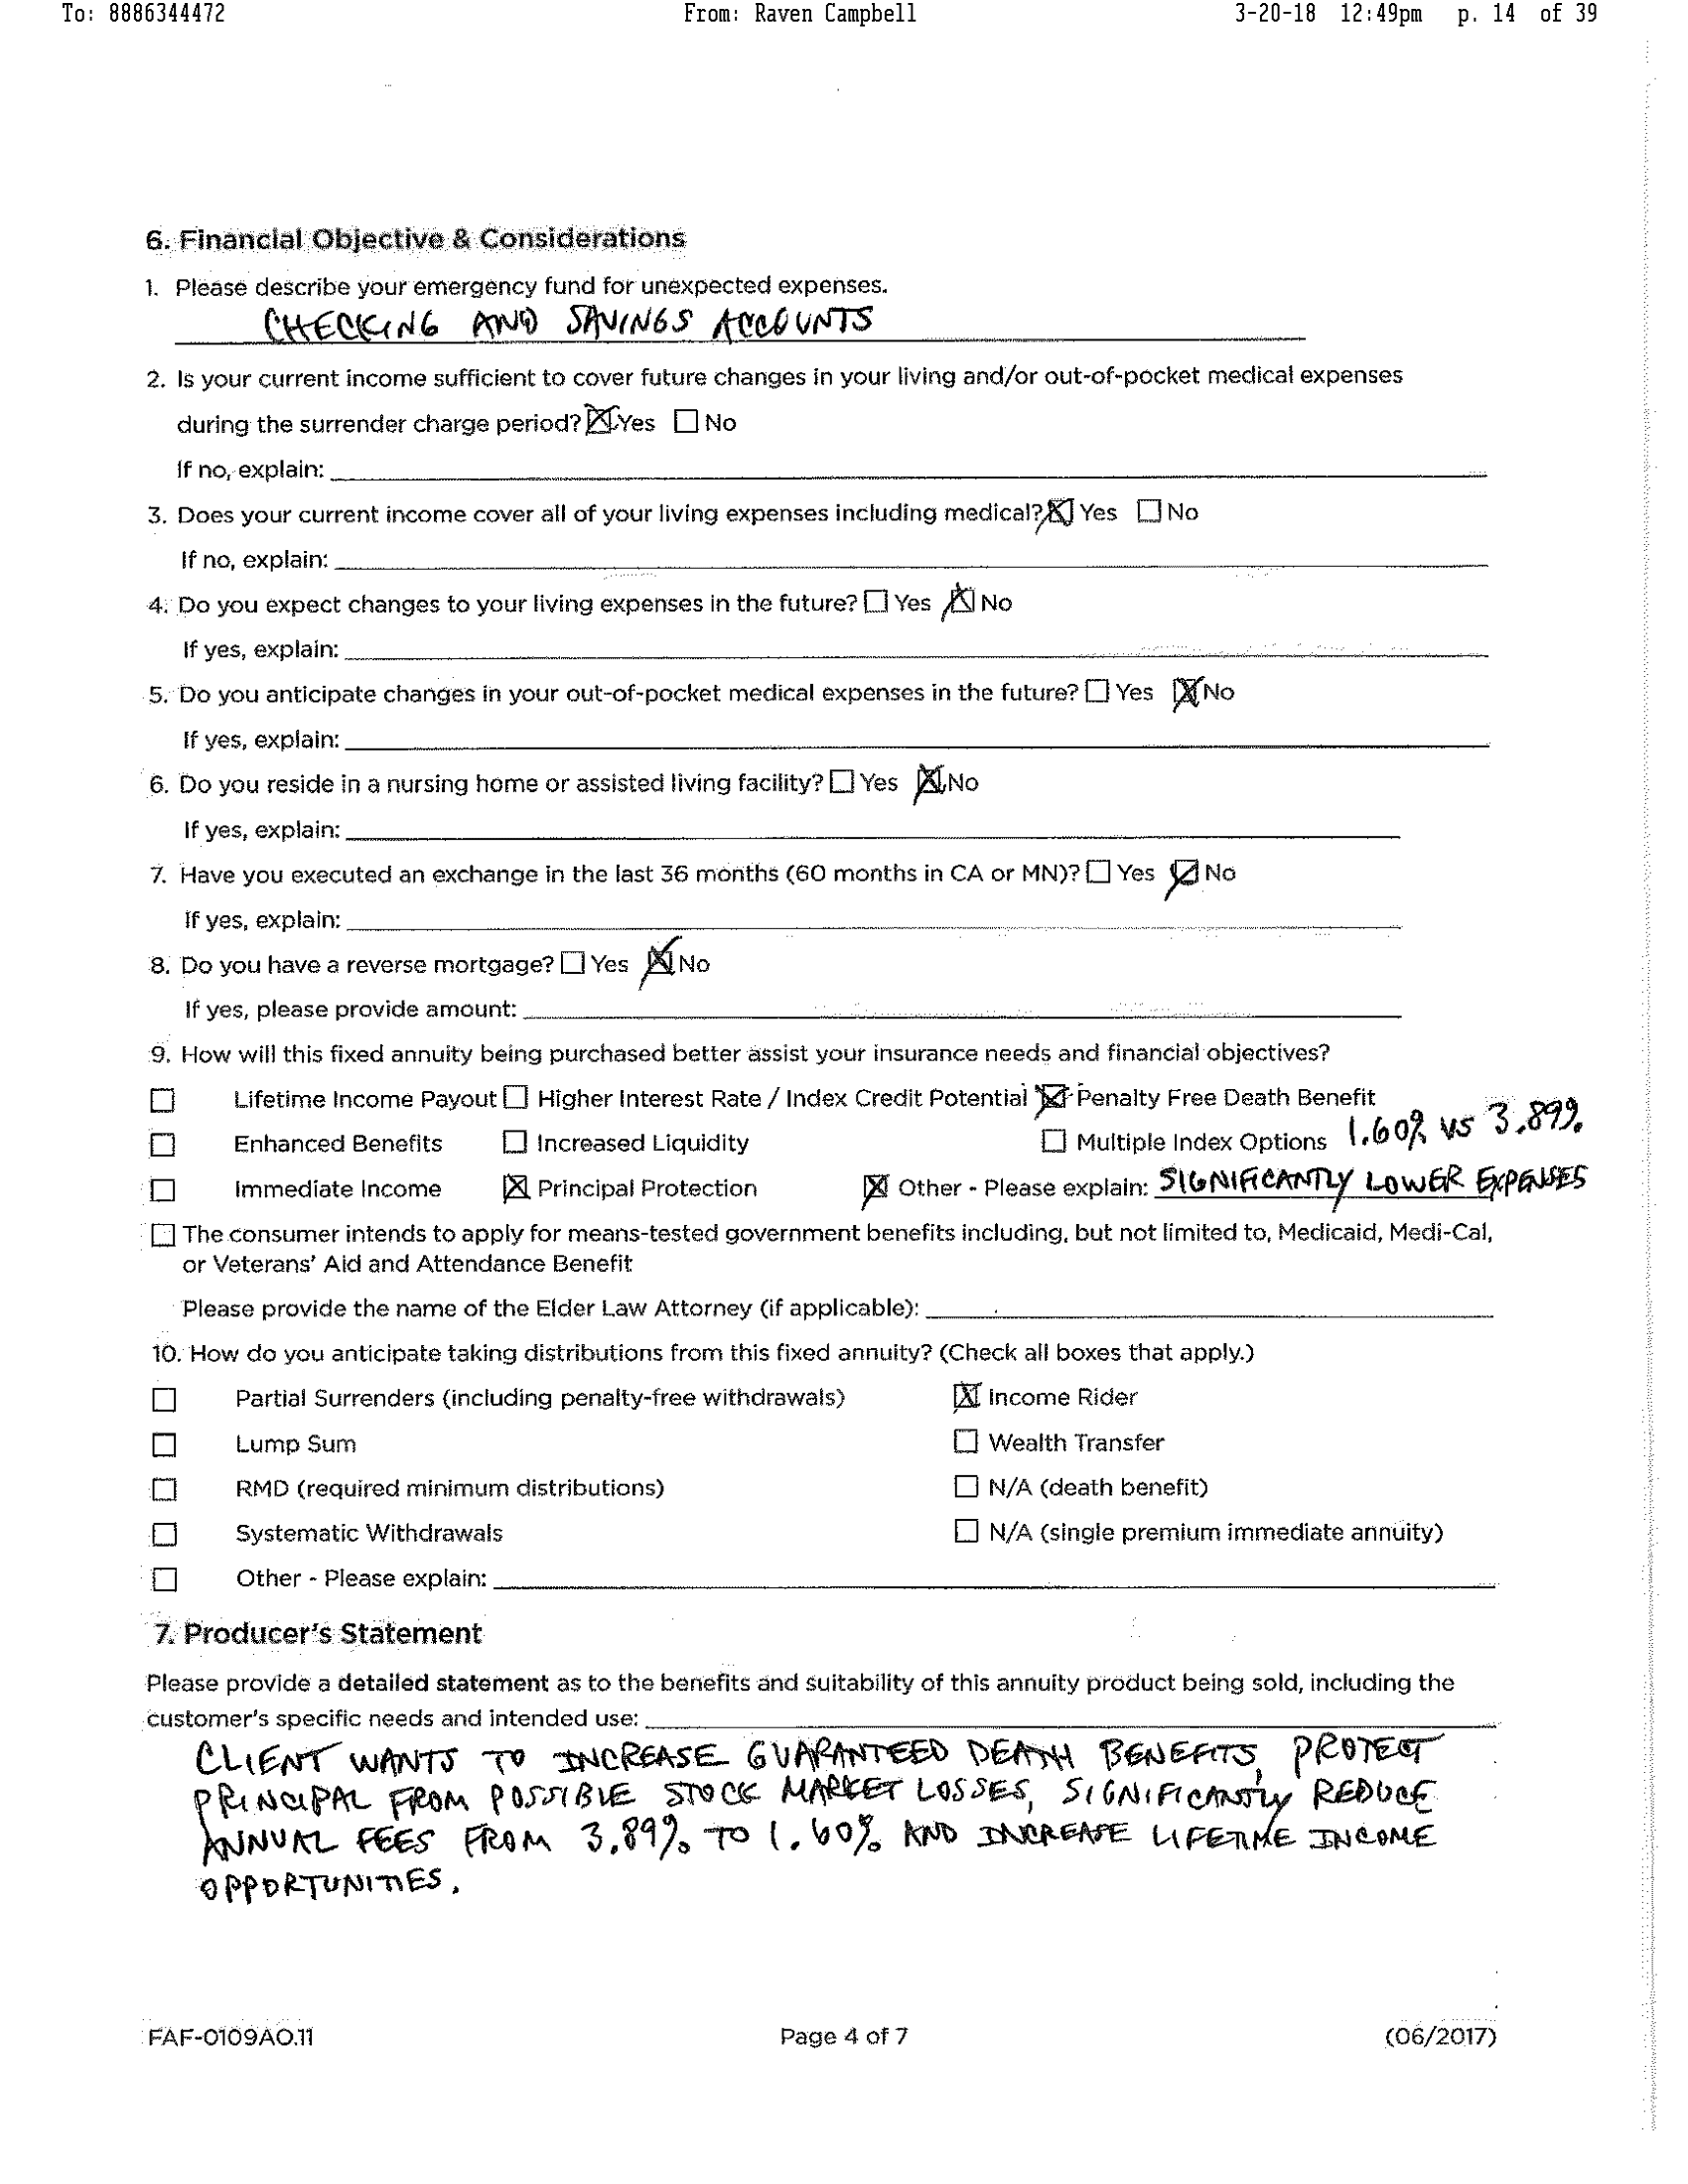 To: 8886344472 From: Raven Campbell 3-20-18 12:49pm p. 14 of 39
6. Financial Objective & Considerations
1. Please describe your emergency fund for unexpected expenses.
CHECKING AND SAVINGS ACCOUNTS
2. Is your current income sufficient to cover future changes in your living and/or out-of-pocket medical expenses
during the surrender charge period? ☒ Yes ☐ No
If no, explain:
3. Does your current income cover all of your living expenses including medical? ☒ Yes ☐ No
If no, explain:
4. Do you expect changes to your living expenses in the future? ☐ Yes ☒ No
If yes, explain:
5. Do you anticipate changes in your out-of-pocket medical expenses in the future? ☐ Yes ☒ No
If yes, explain:
6. Do you reside in a nursing home or assisted living facility? ☐ Yes ☒ No
If yes, explain:
7. Have you executed an exchange in the last 36 months (60 months in CA or MN)? ☐ Yes ☒ No
If yes, explain:
8. Do you have a reverse mortgage? ☐ Yes ☒ No
If yes, please provide amount:
9. How will this fixed annuity being purchased better assist your insurance needs and financial objectives?
☐ Lifetime Income Payout ☐ Higher Interest Rate / Index Credit Potential ☒ Penalty Free Death Benefit
☐ Enhanced Benefits ☐ Increased Liquidity ☐ Multiple Index Options 1.60% VS 3.89%
☐ Immediate Income ☒ Principal Protection ☒ Other - Please explain: SIGNIFICANTLY LOWER EXPENSES
☐ The consumer intends to apply for means-tested government benefits including, but not limited to, Medicaid, Medi-Cal,
or Veterans' Aid and Attendance Benefit
Please provide the name of the Elder Law Attorney (if applicable):
10. How do you anticipate taking distributions from this fixed annuity? (Check all boxes that apply.)
☐ Partial Surrenders (including penalty-free withdrawals) ☒ Income Rider
☐ Lump Sum ☐ Wealth Transfer
☐ RMD (required minimum distributions) ☐ N/A (death benefit)
☐ Systematic Withdrawals ☐ N/A (single premium immediate annuity)
☐ Other - Please explain:
7. Producer's Statement
Please provide a detailed statement as to the benefits and suitability of this annuity product being sold, including the
customer's specific needs and intended use:
CLIENT WANTS TO INCREASE GUARANTEED DEATH BENEFITS, PROTECT
PRINCIPAL FROM POSSIBLE STOCK MARKET LOSSES, SIGNIFICANTLY REDUCE
ANNUAL FEES FROM 3.89% TO 1.60% AND INCREASE LIFETIME INCOME
OPPORTUNITIES.
FAF-0109AO.11 Page 4 of 7 (06/2017)